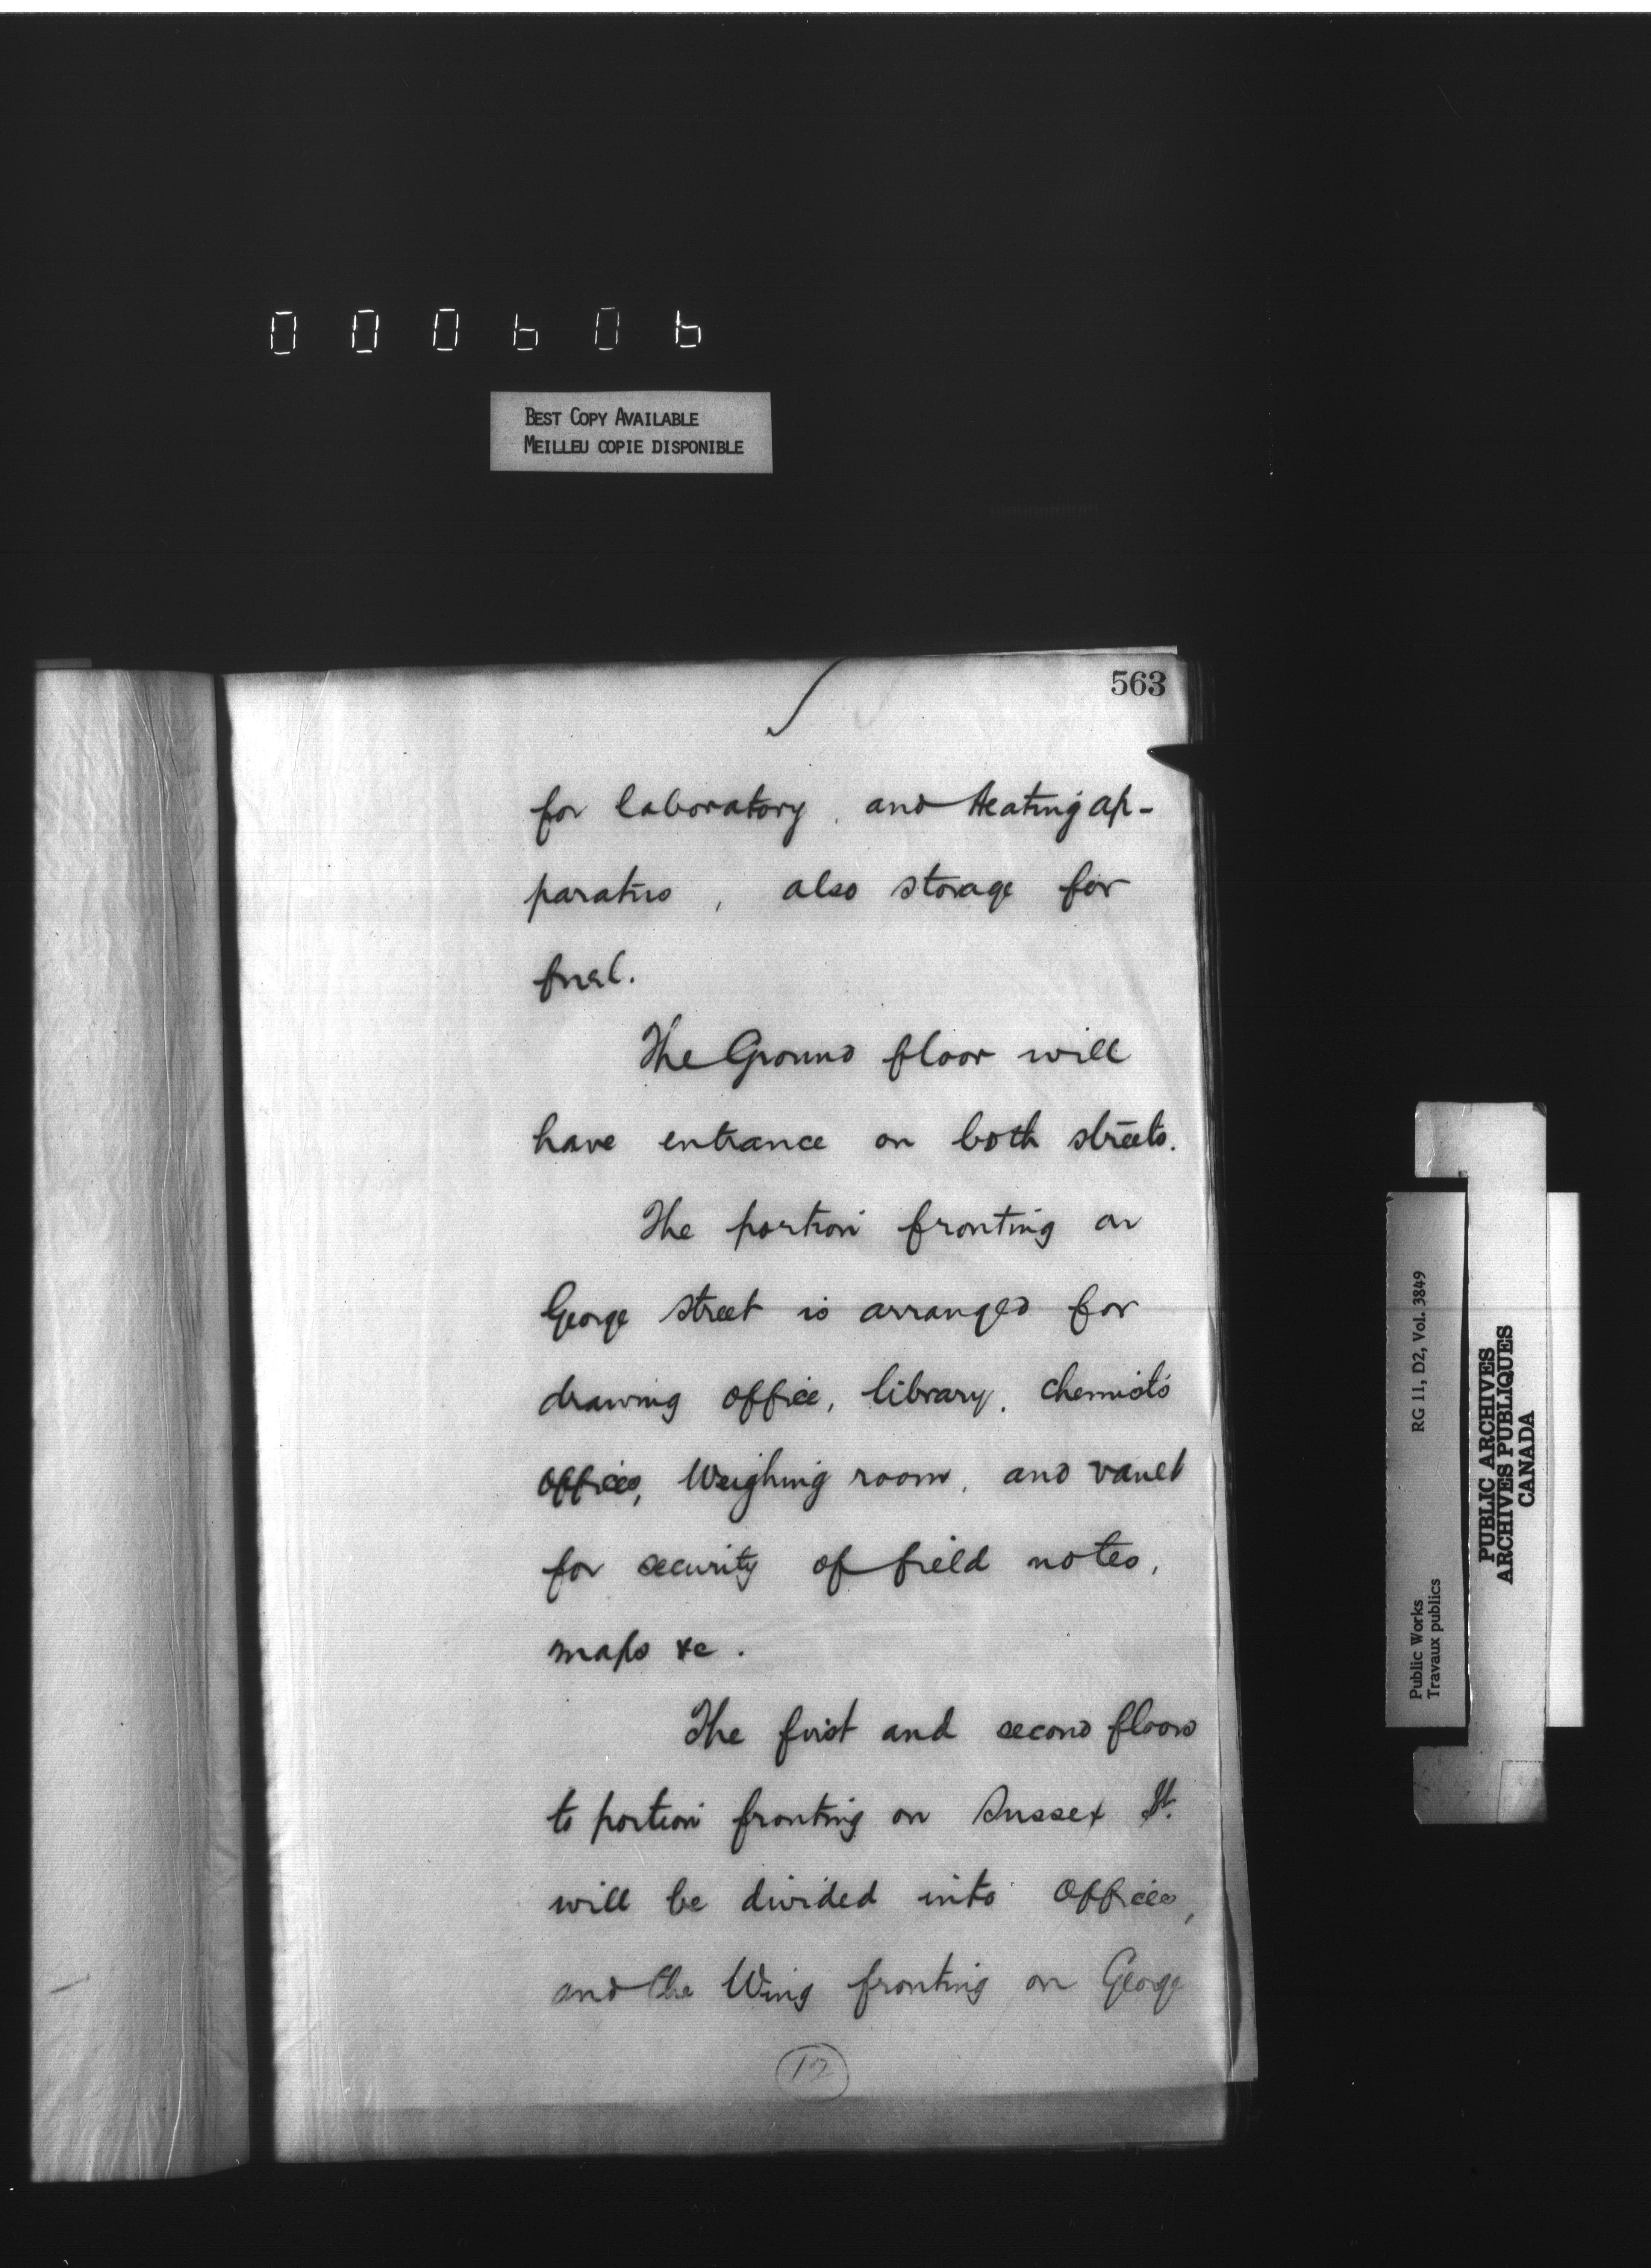 000606
BEST COPY AVAILABLE
MEILLEU COPIE DISPONIBLE
563
for laboratory, and Heating ap-
paratus, also storage for
fuel.
The Ground floor will
have entrance on both streets.
The portion fronting on
George street is arranged for
drawing office, library, Chemists
offices, Weighing room, and vault
for security of field notes,
maps &c.
The first and second floors
to portion fronting on Sussex St.
will be divided into offices,
and the Wing fronting on George
12
Public Works
Travaux publics
RG 11, D2, Vol. 3849
PUBLIC ARCHIVES
ARCHIVES PUBLIQUES
CANADA